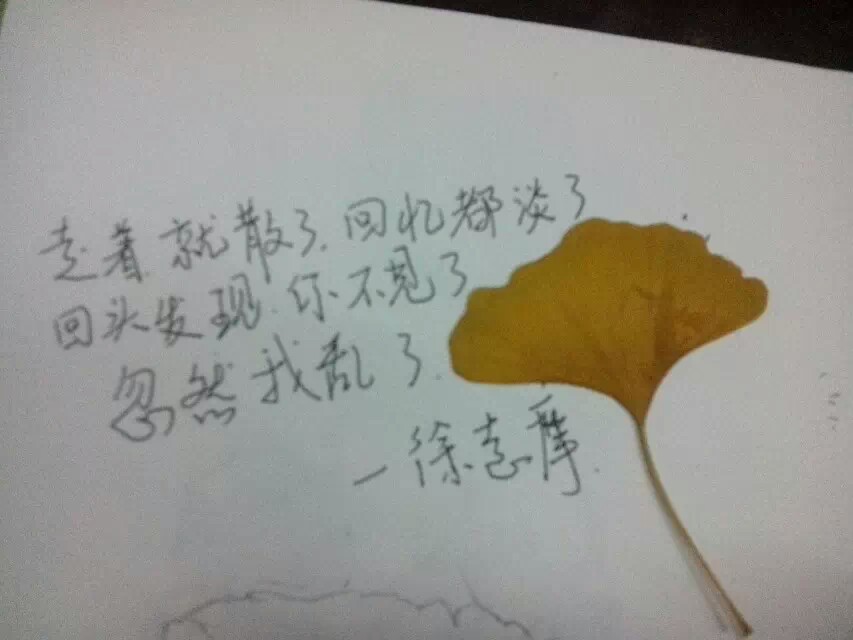 走着就散了,回忆都淡了
回头发现,你不见了
忽然我乱了.
—徐志摩.